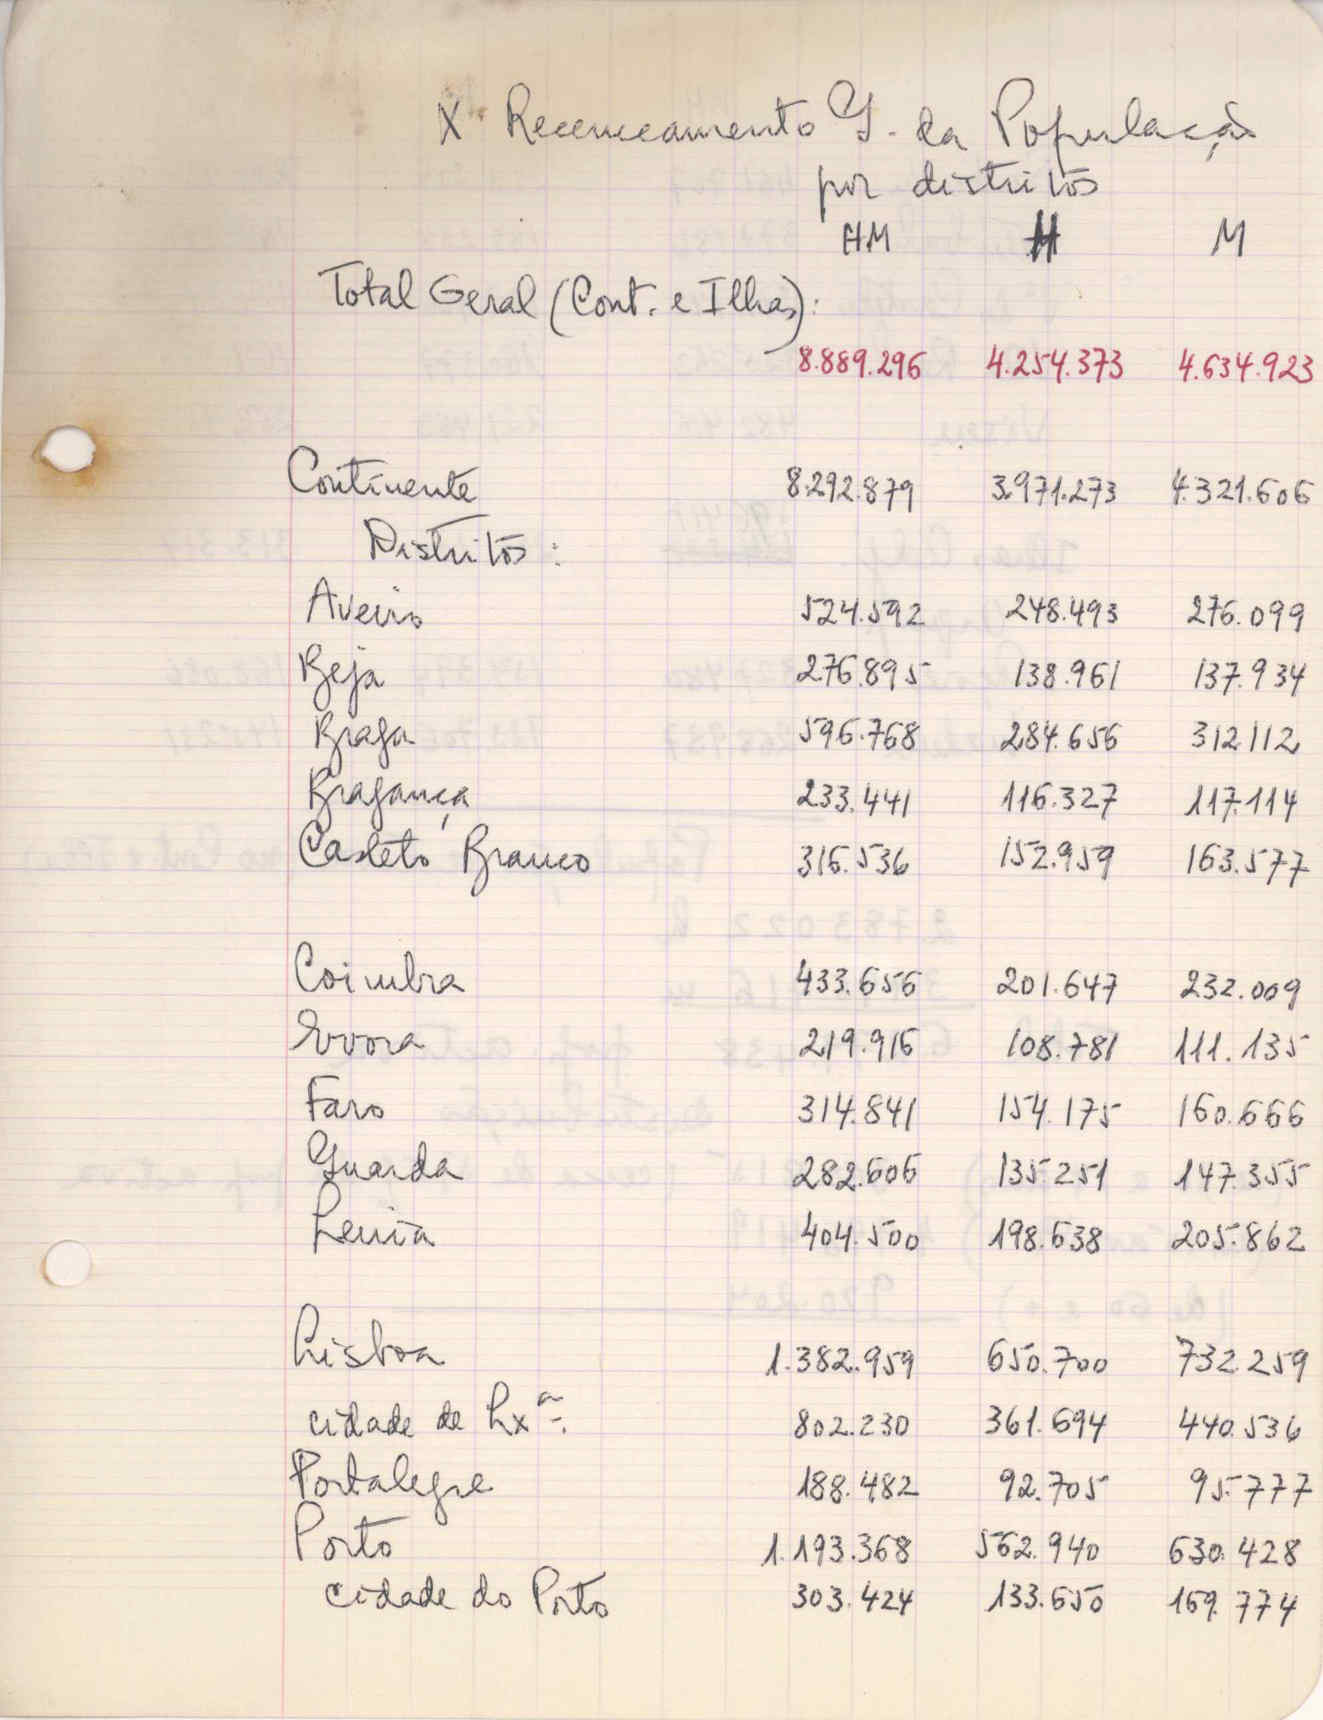 X Recenseamento G. da População
por distritos
HM H M
Total Geral (Cont. e Ilhas):
8.889.296 4.254.373 4.634.923
Continente 8.292.879 3.971.273 4.321.606
Distritos:
Aveiro 524.592 248.493 276.099
Beja 276.895 138.961 137.934
Braga 596.768 284.656 312.112
Bragança 233.441 116.327 117.114
Castelo Branco 316.536 152.959 163.577
Coimbra 433.656 201.647 232.009
Evora 219.916 108.781 111.135
Faro 314.841 154.175 160.666
Guarda 282.606 135.251 147.355
Leiria 404.500 198.638 205.862
Lisboa 1.382.959 650.700 732.259
cidade de Lxª. 802.230 361.694 440.536
Portalegre 188.482 92.705 95.777
Porto 1.193.368 562.940 630.428
cidade do Porto 303.424 133.650 169.774